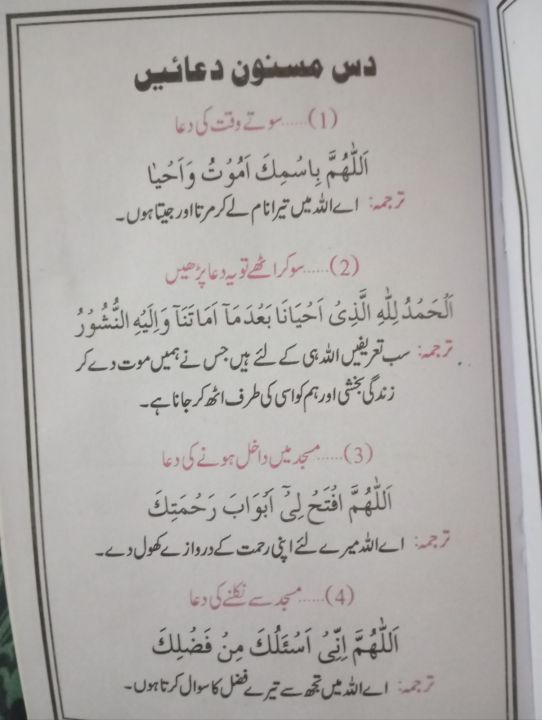 دس مسنون دعائیں
(1)......سوتے وقت کی دعا
اَللّٰهُمَّ بِاسْمِكَ اَمُوْتُ وَاَحْيَا
ترجمہ: اے اللہ میں تیرا نام لے کر مرتا اور جیتا ہوں۔
(2)......سو کر اٹھے تو یہ دعا پڑھیں
اَلْحَمْدُ لِلّٰهِ الَّذِیْ اَحْيَانَا بَعْدَ مَآ اَمَاتَنَا وَاِلَيْهِ النُّشُوْرُ
ترجمہ: سب تعریفیں اللہ ہی کے لئے ہیں جس نے ہمیں موت دے کر
زندگی بخشی اور ہم کو اسی کی طرف اٹھ کر جانا ہے۔
(3)......مسجد میں داخل ہونے کی دعا
اَللّٰهُمَّ افْتَحْ لِیْ اَبْوَابَ رَحْمَتِكَ
ترجمہ: اے اللہ میرے لئے اپنی رحمت کے دروازے کھول دے۔
(4)......مسجد سے نکلنے کی دعا
اَللّٰهُمَّ اِنِّیْ اَسْئَلُكَ مِنْ فَضْلِكَ
ترجمہ: اے اللہ میں تجھ سے تیرے فضل کا سوال کرتا ہوں۔